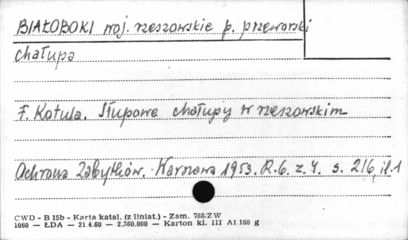 BIAŁOBOKI woj. rzeszowskie p. przeworski
chałupa
F. Kotula. Słupowe chałupy w rzeszowskim
Ochrona Zabytków. Warszawa 1953. R.6. z. 4. s. 216, il.1
CWD - B 15b - Karta katal. (z liniat.) - Zam. 788/ZW
1060 — ŁDA — 21.4.60 — 2.360.000 — Karton kl. III A1 160 g